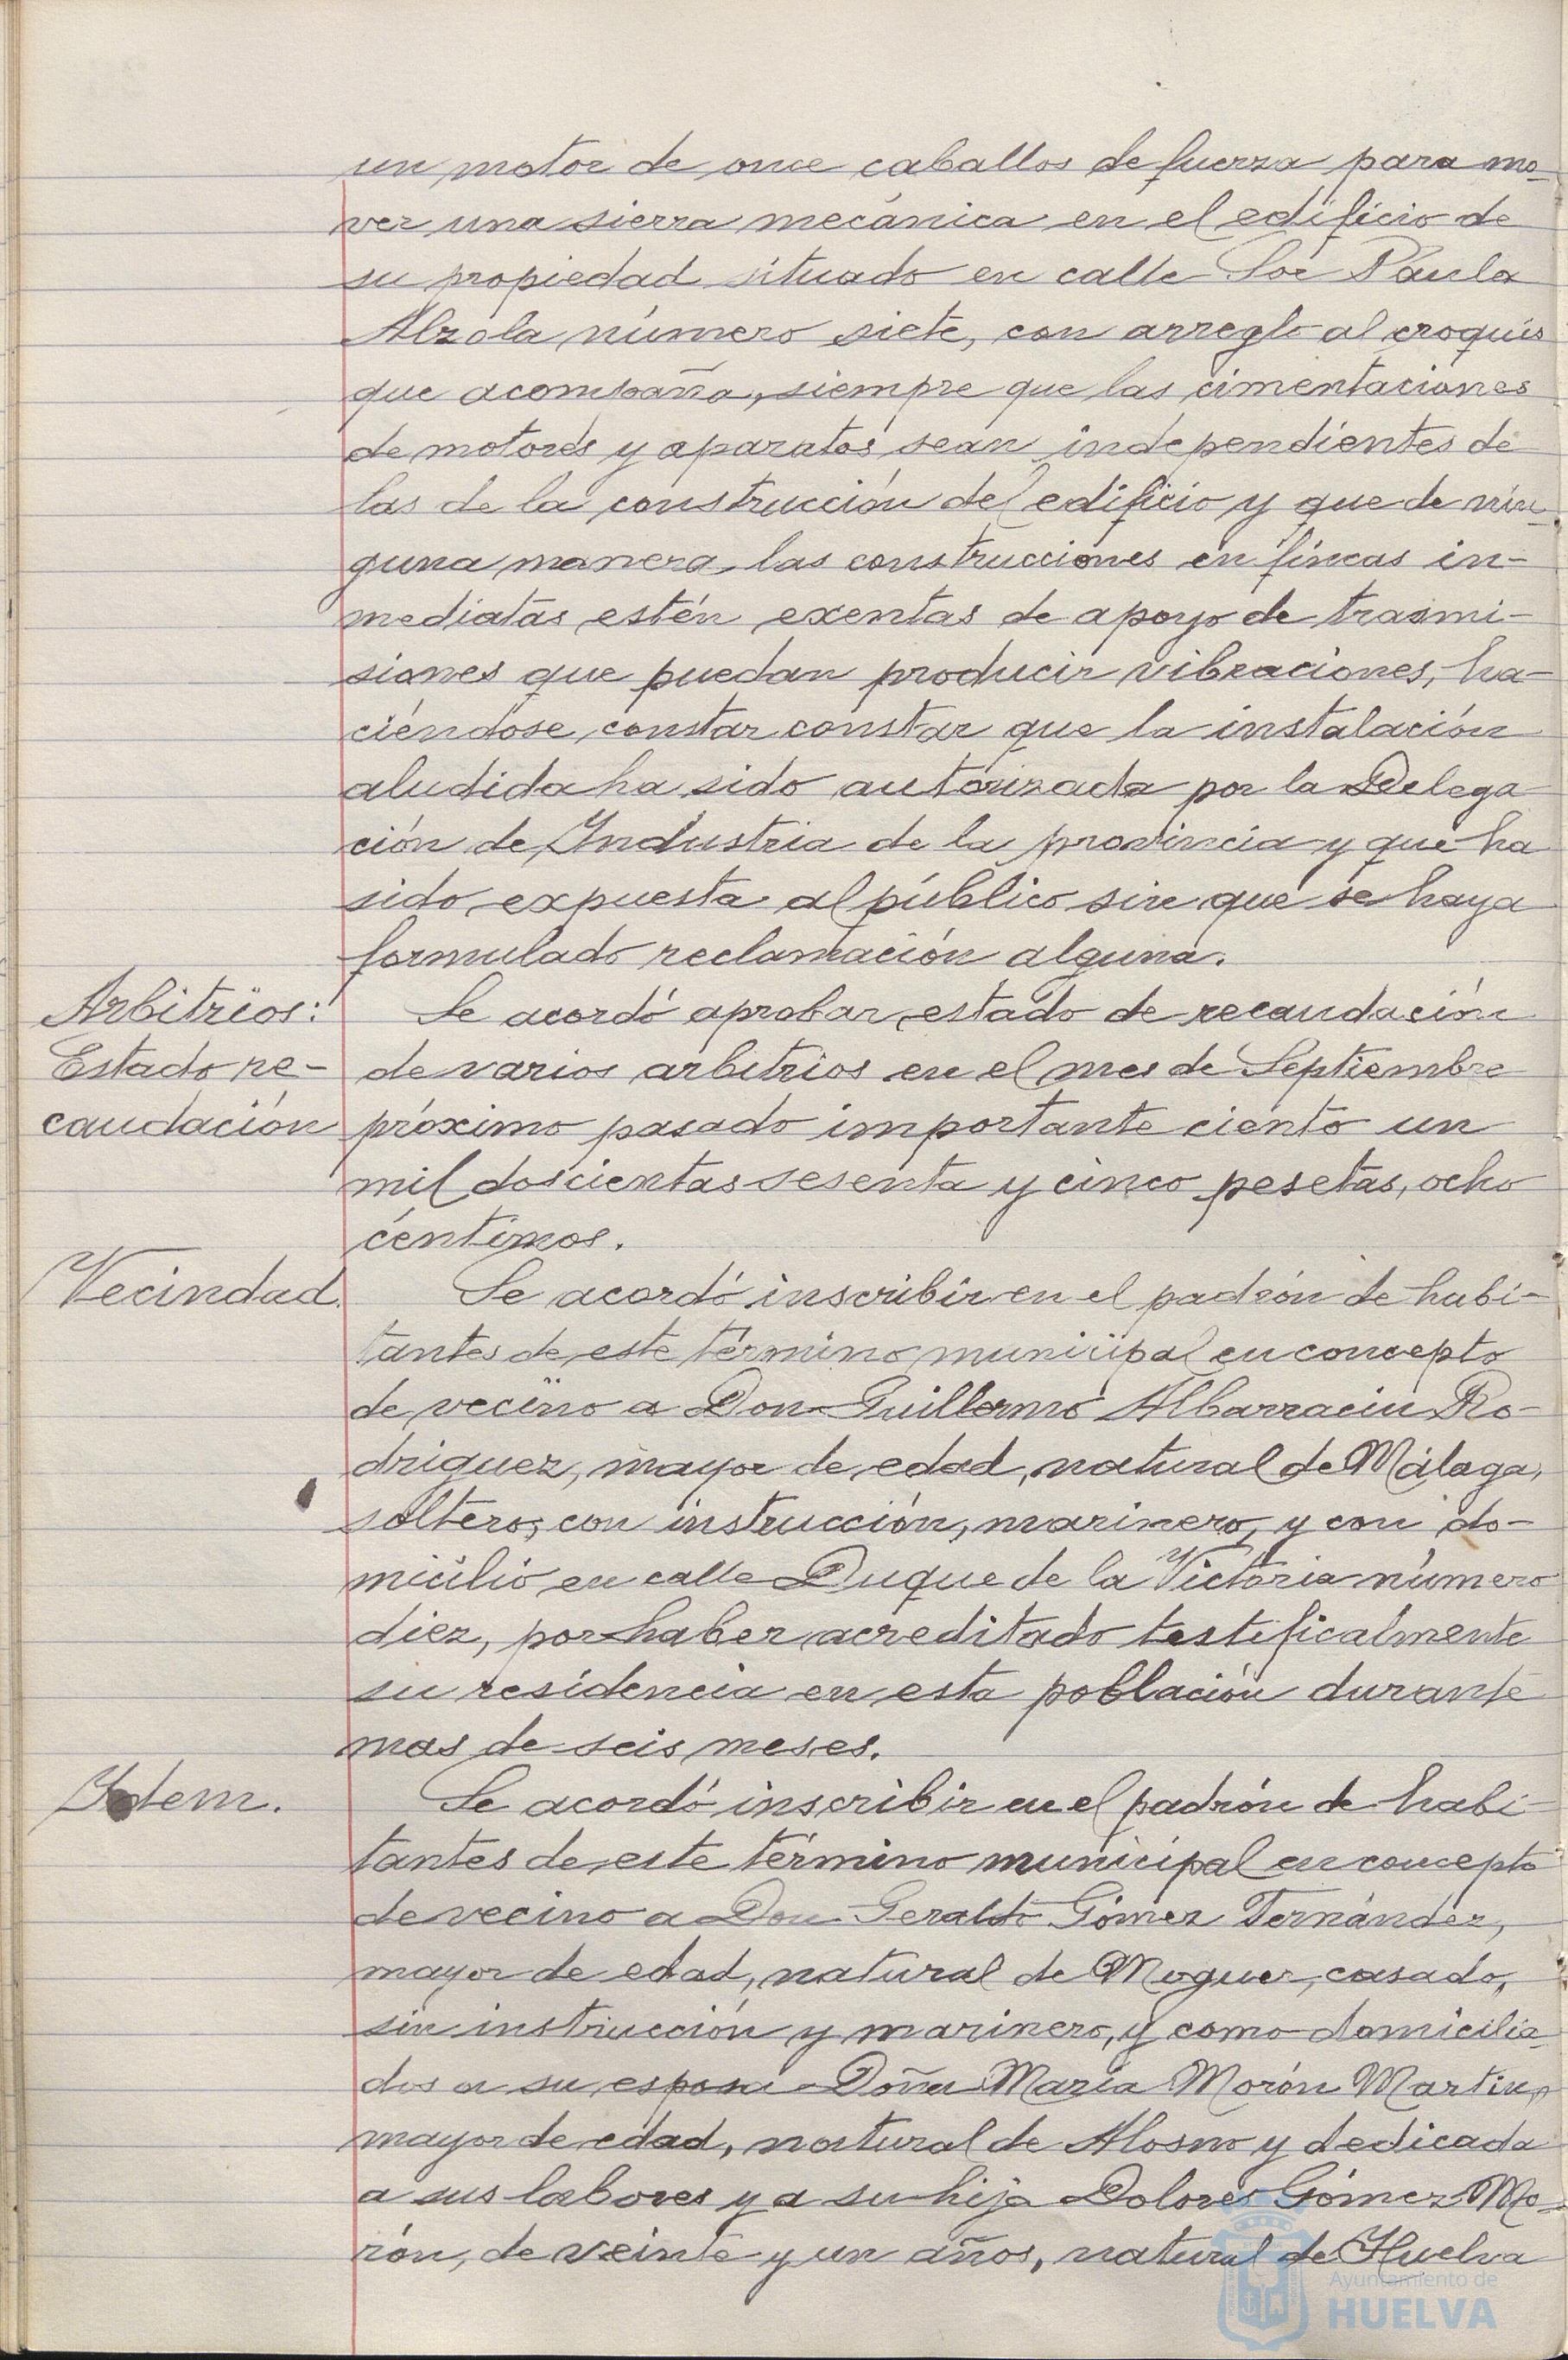 un motor de once caballos de fuerza para mo-
ver una sierra mecánica en el edificio de
su propiedad situado en calle Sor Paula
Alzola número siete, con arreglo al croquis
que acompaña, siempre que las cimentaciones
de motores y aparatos sean independientes de
las de la construcción del edificio y que de nin-
guna manera las construcciones en fincas in-
mediatas estén exentas de apoyo de trasmi-
siones que puedan producir vibraciones, ha-
ciéndose constar constar que la instalación
aludida ha sido autorizada por la Delega
ción de Industria de la provincia y que ha
sido expuesta al público sin que se haya
formulado reclamación alguna.
Arbitrios:
Estado re-
caudación
Se acordó aprobar estado de recaudación
de varios arbitrios en el mes de Septiembre
próximo pasado importante ciento un
mil doscientas sesenta y cinco pesetas, ocho
céntimos.
Vecindad.
Se acordó inscribir en el padrón de habi-
tantes de este término municipal en concepto
de vecino a Don Guillermo Albarracin Ro-
driguez, mayor de edad, natural de Málaga,
soltero, con instrucción, marinero, y con do-
micilio en calle Duque de la Victoria número
diez, por haber acreditado testificalmente
su residencia en esta población durante
mas de seis meses.
Idem.
Se acordó inscribir en el padrón de habi-
tantes de este término municipal en concepto
de vecino a Don Geraldo Gómez Fernández,
mayor de edad, natural de Moguer, casado,
sin instrucción y marinero, y como domicilia-
dos a su esposa Doña María Morón Martin,
mayor de edad, natural de Alosno y dedicada
a sus labores y a su hija Dolores Gómez Mo-
rón, de veinte y un años, natural de Huelva
Ayuntamiento de
HUELVA